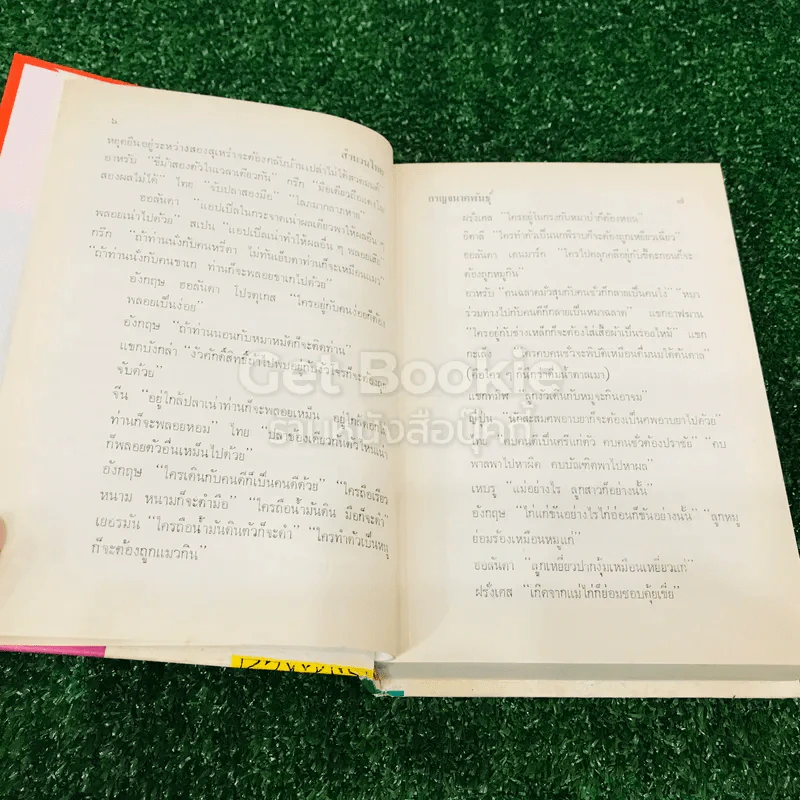 ๖
สำนวนไทย
หยุดยืนอยู่ระหว่างสองสุเหร่าจะต้องกลับบ้านเปล่าไม่ได้สวดมนต์"
อาหรับ "ขี่ม้าสองตัวในเวลาเดียวกัน" กรีก "มือเดียวถือแตงโม
สองผลไม่ได้" ไทย "จับปลาสองมือ" "โลภมากลาภหาย"
ฮอลันดา "แอปเปิ้ลในกระจาดเน่าผลเดียวพาให้ผลอื่น ๆ
พลอยเน่าไปด้วย" สเปน "แอปเปิ้ลเน่าทำให้ผลอื่น ๆ พลอยเสีย"
กรีก "ถ้าท่านนั่งกับคนหรี่ตา ไม่ทันเย็นตาท่านก็จะเหมือนแมว"
"ถ้าท่านนั่งกับคนขาเก ท่านก็จะพลอยขาเกไปด้วย"
อังกฤษ ฮอลันดา โปรตุเกส "ใครอยู่กับคนง่อยก็ต้อง
พลอยเป็นง่อย"
อังกฤษ "ถ้าท่านนอนกับหมาหมัดก็จะติดท่าน"
แขกบังกล่า
จับด้วย"
จีน "อยู่ใกล้ปลาเน่าท่านก็จะพลอยเหม็น อยู่ใกล้ดอกไม้
ท่านก็จะพลอยหอม" ไทย "ปลาข้องเดียวกันตัวไหนเน่า
ก็พลอยตัวอื่นเหม็นไปด้วย"
อังกฤษ "ใครเดินกับคนดีก็เป็นคนดีด้วย" "ใครถือเรียว
หนาม หนามก็จะตำมือ" "ใครถือน้ำมันดิน มือก็จะดำ"
เยอรมัน "ใครถือน้ำมันดินตัวก็จะดำ" "ใครทำตัวเป็นหนู
ก็จะต้องถูกแมวกิน"
กาญจนาคพันธุ์
๗
ฝรั่งเศส "ใครอยู่ในกรงกับหมาป่าก็ต้องหอน"
อิตาลี "ใครทำตัวเป็นนกพิราบก็จะต้องถูกเหยี่ยวเฉี่ยว"
ฮอลันดา เดนมาร์ก "ใครไปคลุกคลีอยู่กับขี้ตะกอนก็จะ
ต้องถูกหมูกิน"
อาหรับ "คนฉลาดมั่วสุมกับคนชั่วก็กลายเป็นคนโง่" "หมา
ร่วมทางไปกับคนดีก็กลายเป็นหมาฉลาด" แขกอาฟฆาน
"ใครอยู่กับช่างเหล็กก็จะต้องใส่เสื้อผ้าเป็นรอยไหม้" แขก
กะเลง ใครคบคนชั่วจะพิบัติเหมือนดื่มนมใต้ต้นตาล"
(คือใคร ๆ ก็นึกว่าดื่มน้ำตาลเมา)
แขกทมิฬ "ลูกวัวเดินกับหมูจะกินอาจม"
ญี่ปุ่น "นักสะสมศพอาบยาก็จะต้องเป็นศพอาบยาไปด้วย"
ไทย "คบคนดีเป็นศรีแก่ตัว คบคนชั่วต้องปราชัย" "คบ
พาลพาไปหาผิด คบบัณฑิตพาไปหาผล"
เหบรู "แม่อย่างไร ลูกสาวก็อย่างนั้น"
อังกฤษ "ไก่แก่ขันอย่างไรไก่อ่อนก็ขันอย่างนั้น" "ลูกหมู
ย่อมร้องเหมือนหมูแก่"
ฮอลันดา "ลูกเหยี่ยวปากงุ้มเหมือนเหยี่ยวแก่"
ฝรั่งเศส "เกิดจากแม่ไก่ก็ย่อมชอบคุ้ยเขี่ย"
Get Bookie
ร้านหนังสือบุ๊คกี้